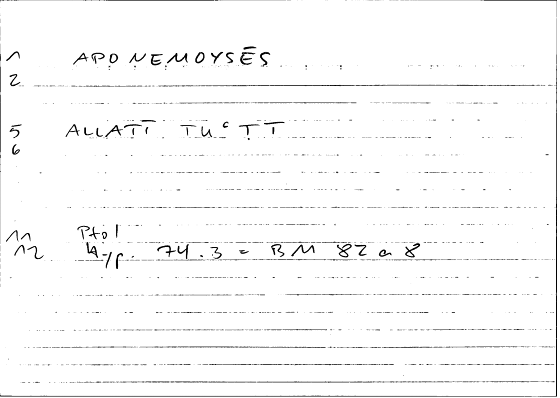 1 APONEMOYSĒS
2
5 ALLATT TUᶜTT
6
11 Ptol
12 Kyp. 74.3 = BM 82 a 8